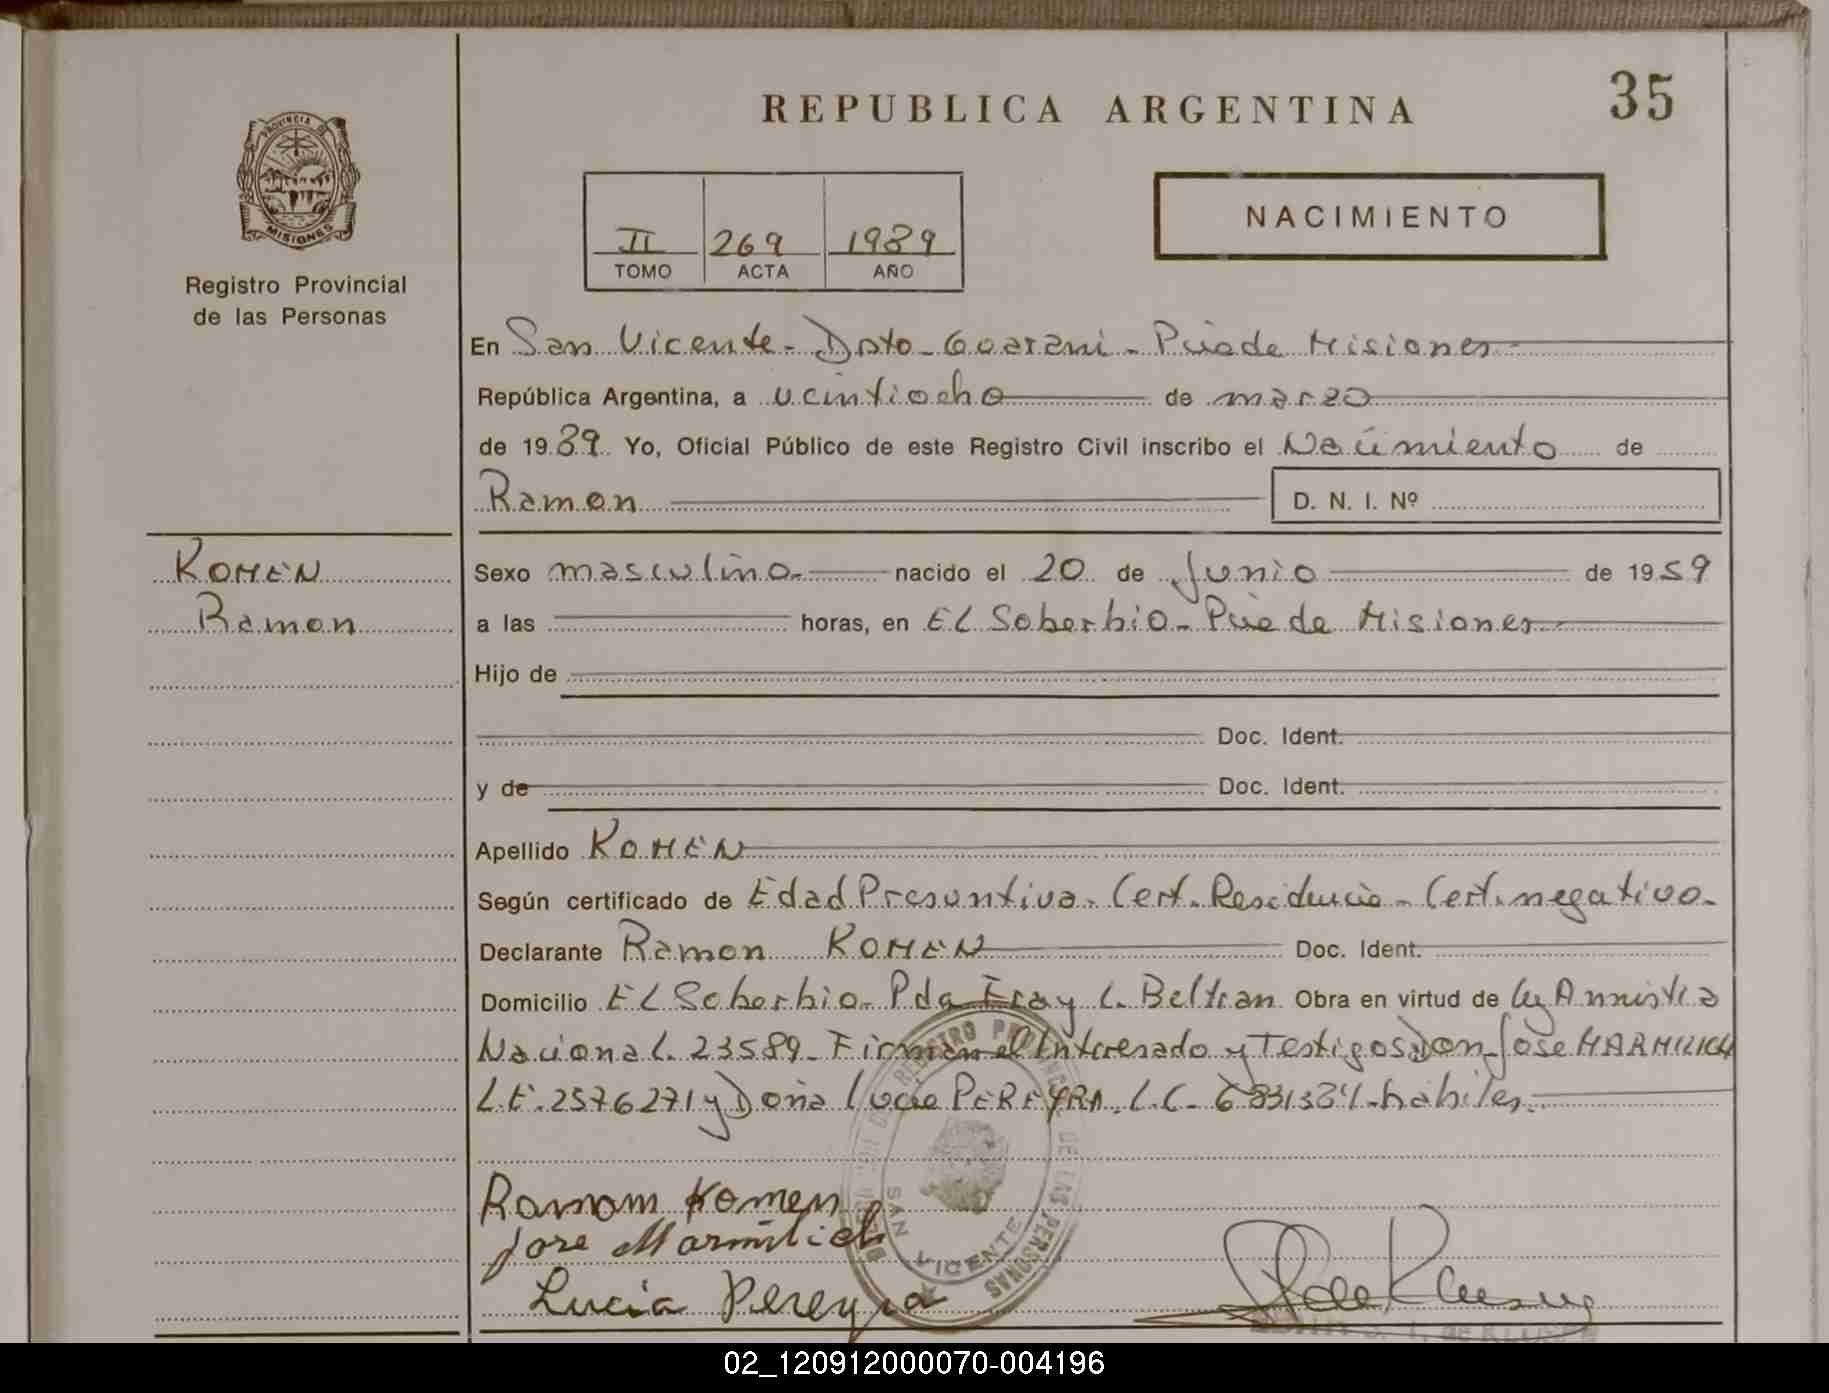 REPUBLICA ARGENTINA
35
PROVINCIA DE
MISIONES
Registro Provincial
de las Personas
II 269 1989
TOMO ACTA AÑO
NACIMIENTO
En San Vicente - Dpto - Guarani - Pcia de Misiones
República Argentina, a veintiocho de marzo
de 1989. Yo, Oficial Público de este Registro Civil inscribo el Nacimiento de
Ramon D. N. I. Nº
KOMEN
Ramon
Sexo masculino nacido el 20 de Junio de 1959
a las horas, en EL Soberbio - Pcia de Misiones
Hijo de
Doc. Ident.
y de Doc. Ident.
Apellido KOMEN
Según certificado de Edad Presuntiva - Cert. Residencia - Cert. negativo.
Declarante Ramon KOMEN Doc. Ident.
Domicilio EL Soberbio - Pda Fray L. Beltran Obra en virtud de Ley Amnistia
Nacional. 23589 - Firman el Interesado y Testigos Don Jose MARMILICH
L.E. 2576271 y Doña Lucia PEREYRA. L.C. habiles.
Ramom Komen
Jose Marmilich
Lucia Pereyra
REGISTRO PROVINCIAL DE LAS PERSONAS
SAN VICENTE
02_120912000070-004196